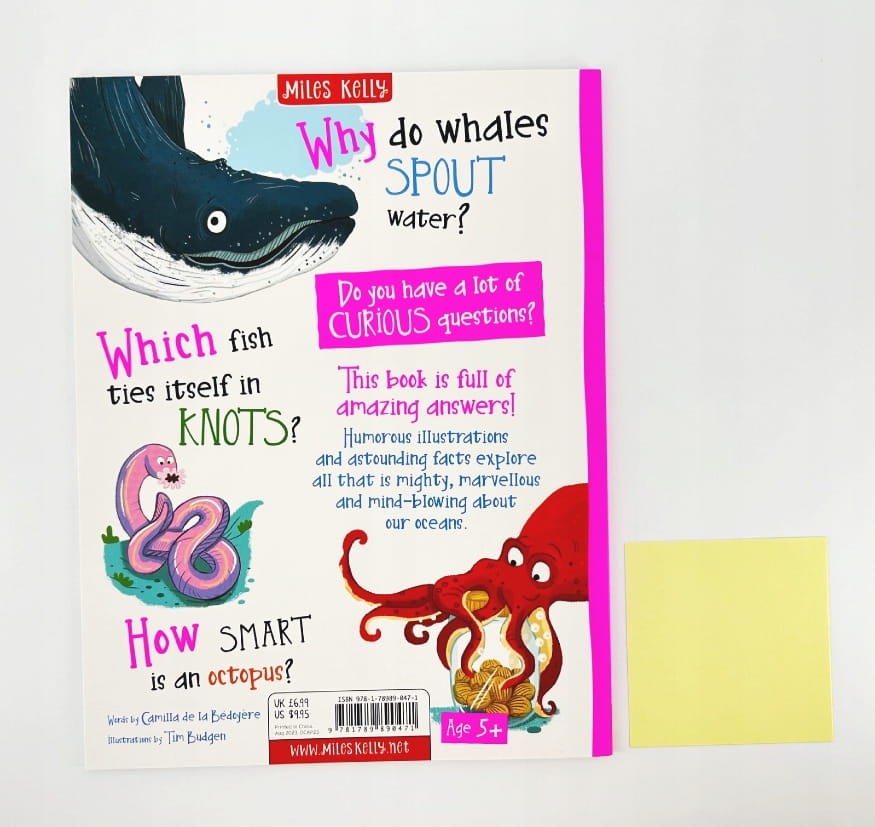 Miles Kelly
Why do whales
SPOUT
water?
Do you have a lot of
CURIOUS questions?
Which fish
ties itself in
KNOTS?
This book is full of
amazing answers!
Humorous illustrations
and astounding facts explore
all that is mighty, marvellous
and mind-blowing about
our oceans.
How SMART
is an octopus?
Words by Camilla de la Bédoyère
Illustrations by Tim Budgen
UK £6.99
US $9.95
Printed in China,
ISBN 978-1-78989-047-1
9 781789 890471
www.mileskelly.net
Age 5+